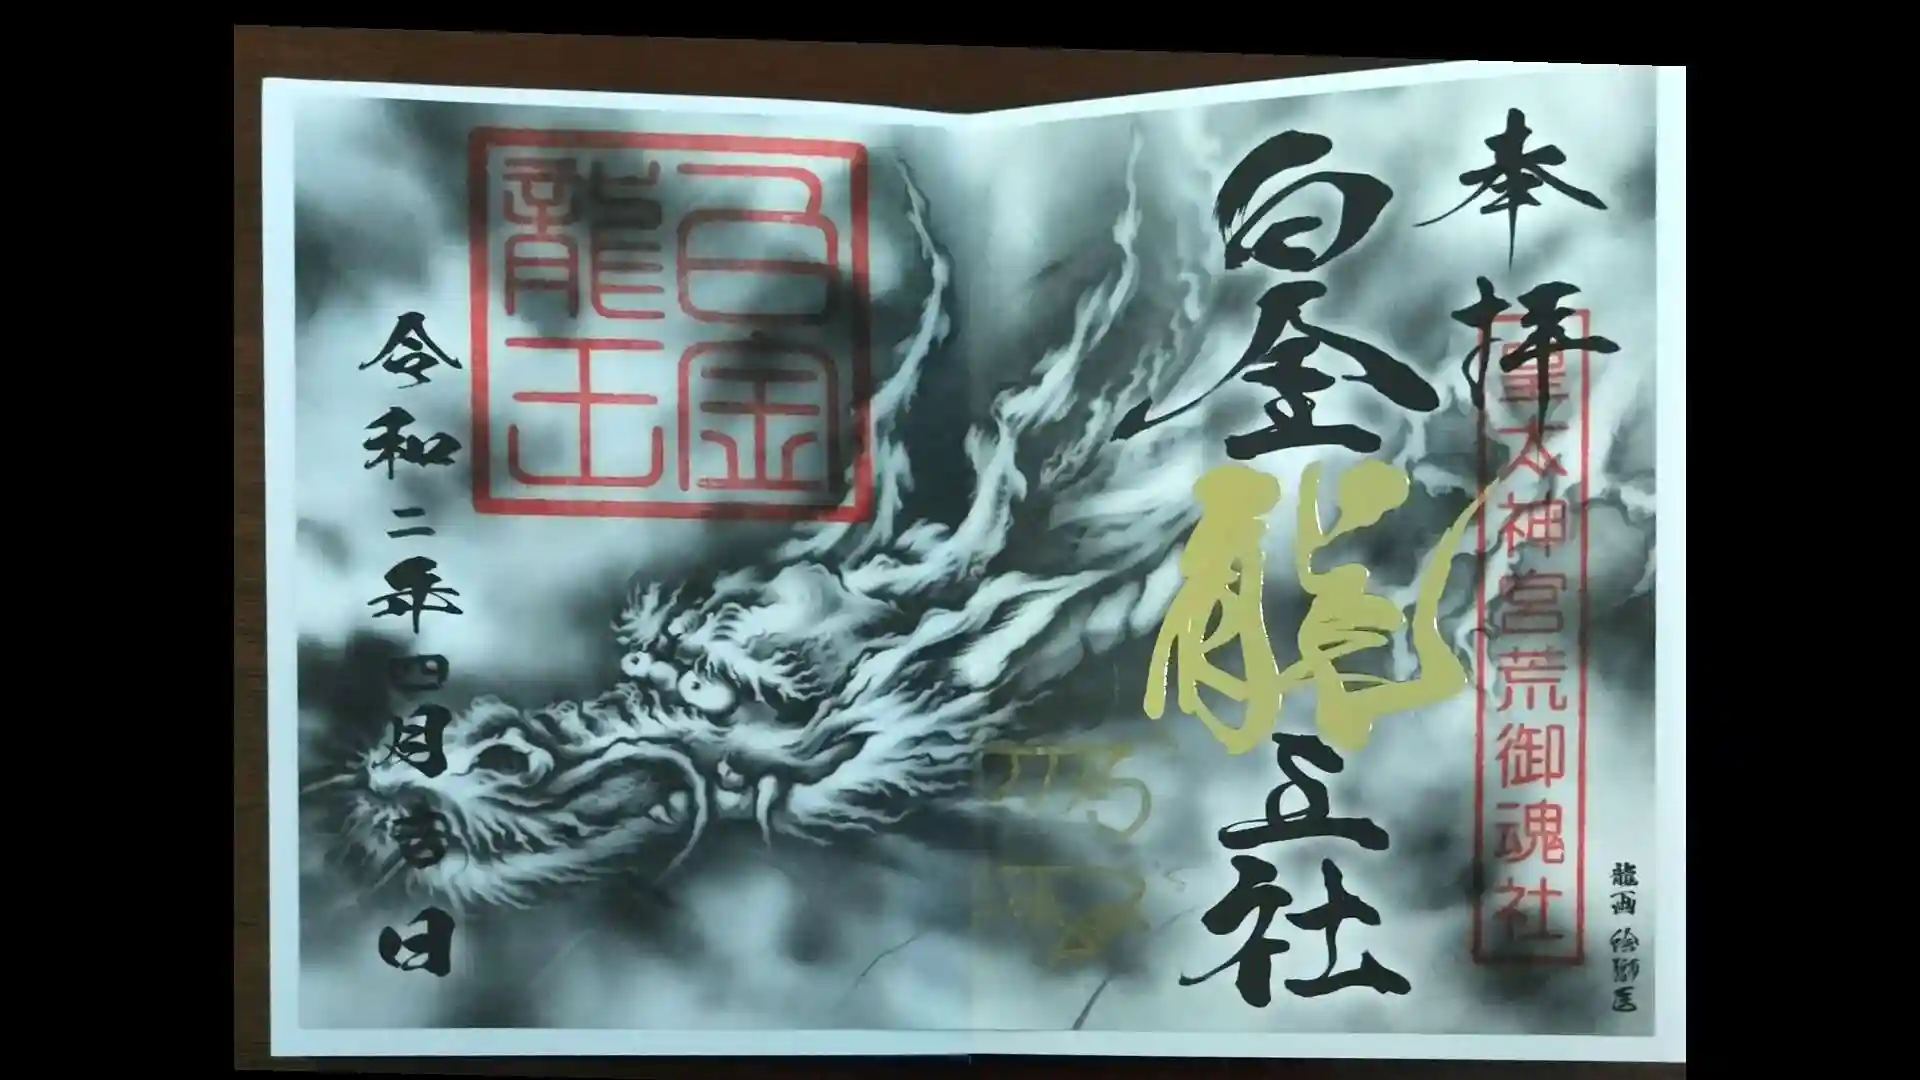 奉拝
皇太神宮荒御魂社
白金龍王社
白金
龍王
令和二年四月吉日
龍画